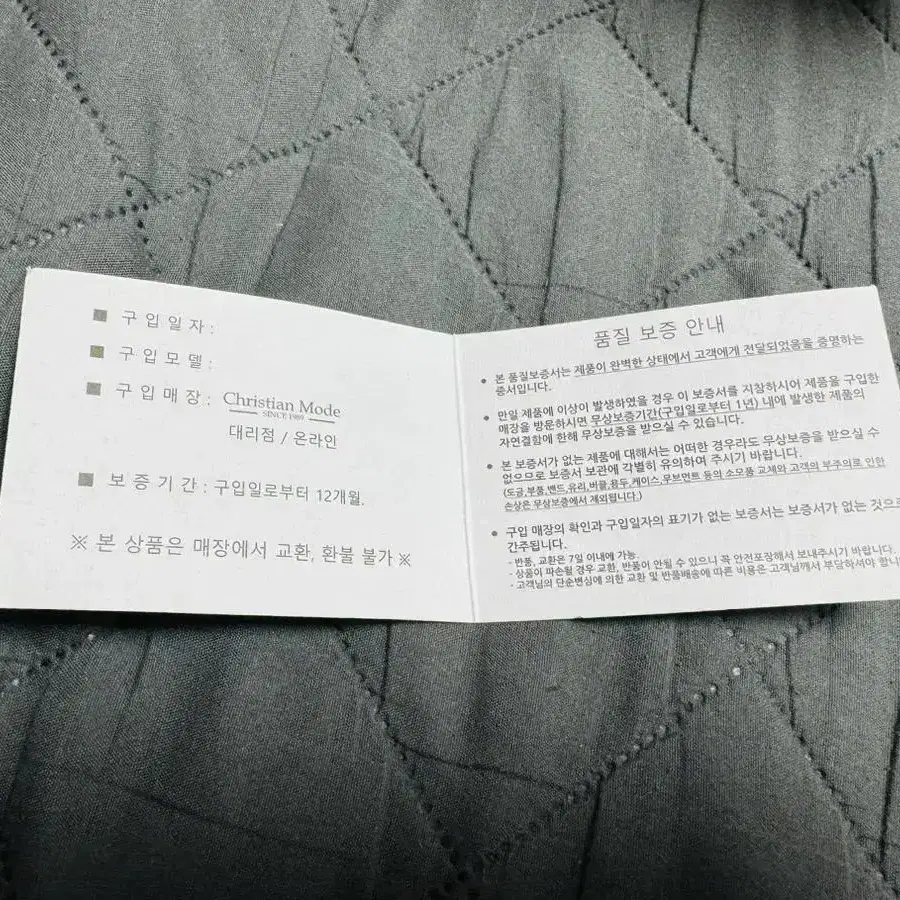 구입일자 :
구입모델 :
구입매장 : Christian Mode
SINCE 1989
대리점 / 온라인
보증기간 : 구입일로부터 12개월.
※ 본 상품은 매장에서 교환, 환불 불가 ※
품질 보증 안내
• 본 품질보증서는 제품이 완벽한 상태에서 고객에게 전달되었음을 증명하는
증서입니다.
• 만일 제품에 이상이 발생하였을 경우 이 보증서를 지참하시어 제품을 구입한
매장을 방문하시면 무상보증기간(구입일로부터 1년) 내에 발생한 제품의
자연결함에 한해 무상보증을 받으실 수 있습니다.
• 본 보증서가 없는 제품에 대해서는 어떠한 경우라도 무상보증을 받으실 수
없으므로 보증서 보관에 각별히 유의하여 주시기 바랍니다.
(도금,부품,밴드,유리,버클,용두,케이스,무브먼트 등의 소모품 교체와 고객의 부주의로 인한
손상은 무상보증에서 제외됩니다.)
• 구입 매장의 확인과 구입일자의 표기가 없는 보증서는 보증서가 없는 것으로
간주됩니다.
- 반품, 교환은 7일 이내에 가능.
- 상품이 파손될 경우 교환, 반품이 안될 수 있으니 꼭 안전포장해서 보내주시기 바랍니다.
- 고객님의 단순변심에 의한 교환 및 반품배송에 따른 비용은 고객님께서 부담하셔야 합니